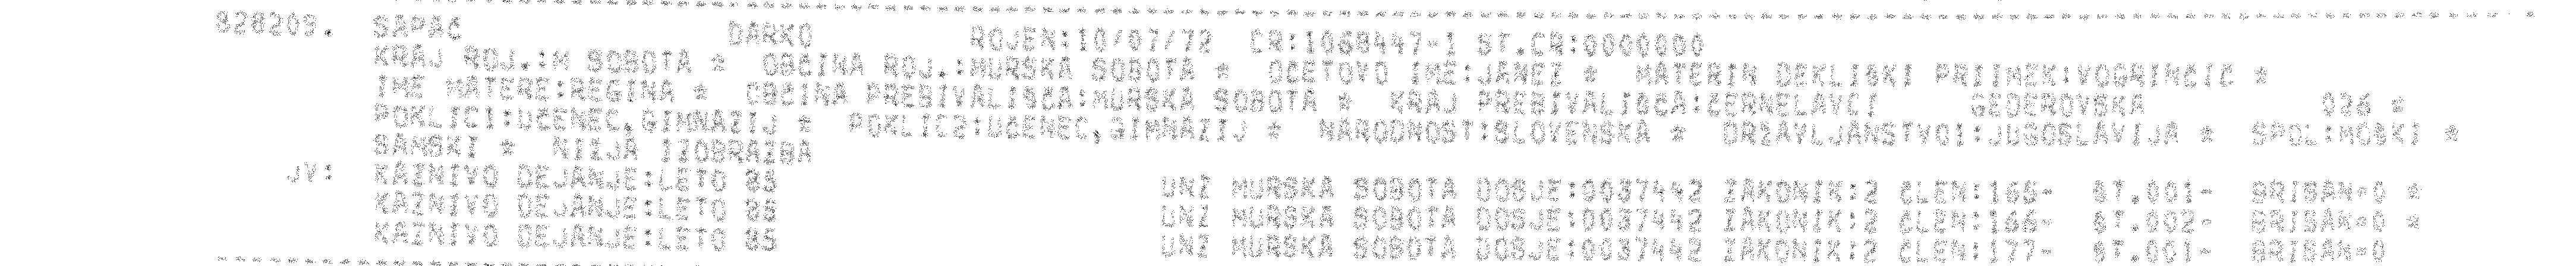 828209. SAPAČ DARKO ROJEN:10/07/72 CR:1068447-1 ST.CR:0000000
KRAJ ROJ.:M SOBOTA * OBČINA ROJ.:MURSKA SOBOTA * OČETOVO IME:JANEZ * MATERIN DEKLIŠKI PRIIMEK:VOGRINČIČ *
IME MATERE:REGINA * OBČINA PREBIVALIŠČA:MURSKA SOBOTA * KRAJ PREBIVALIŠČA:ČERNELAVCI GEDEROVSKA 026 *
POKLIC1:UČENEC,GIMNAZIJ * POKLIC2:UČENEC,GIMNAZIJ * NARODNOST:SLOVENSKA * DRŽAVLJANSTVO1:JUGOSLAVIJA * SPOL:MOŠKI *
SAMSKI * NIŽJA IZOBRAZBA
JV: KAZNIVO DEJANJE:LETO 85 UNZ MURSKA SOBOTA DOSJE:0037442 ZAKONIK:2 ČLEN:166- ŠT.001- BRISAN=0 *
KAZNIVO DEJANJE:LETO 85 UNZ MURSKA SOBOTA DOSJE:0037442 ZAKONIK:2 ČLEN:166- ŠT.002- BRISAN=0 *
KAZNIVO DEJANJE:LETO 85 UNZ MURSKA SOBOTA DOSJE:0037442 ZAKONIK:2 ČLEN:177- ŠT.001- BRISAN=0